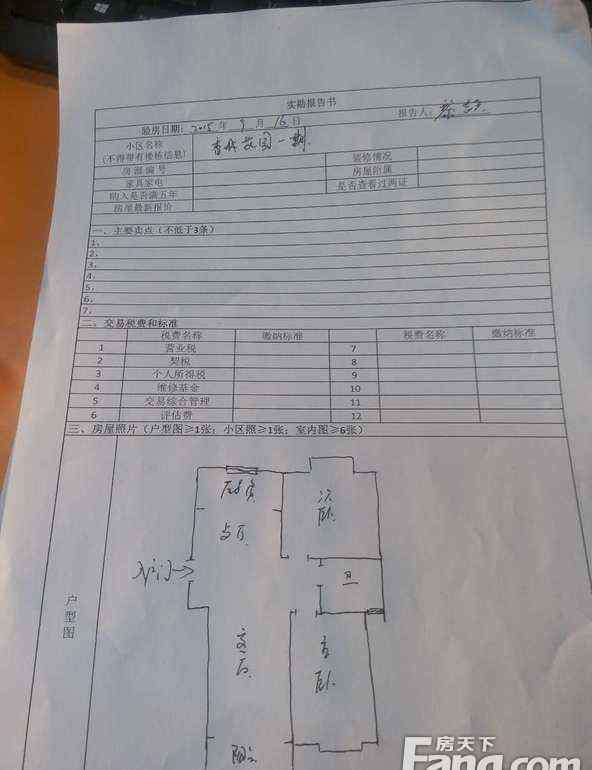 实勘报告书
验房日期: 2015年9月16日 报告人:
小区名称
(不得带有楼栋信息) 花园一期 装修情况
房源编号 房屋附属
家具家电 是否查看过两证
购入是否满五年
房屋最新报价
一、主要卖点（不低于3条）
1、
2、
3、
4、
5、
6、
7、
二、交易税费和标准
税费名称 缴纳标准 税费名称 缴纳标准
1 营业税 7
2 契税 8
3 个人所得税 9
4 维修基金 10
5 交易综合管理 11
6 评估费 12
三、房屋照片（户型图≥1张；小区照≥1张；室内图≥6张）
厨房 次卧
入户门 卫
户型图
客厅 主卧
阳台
房天下
Fang.com